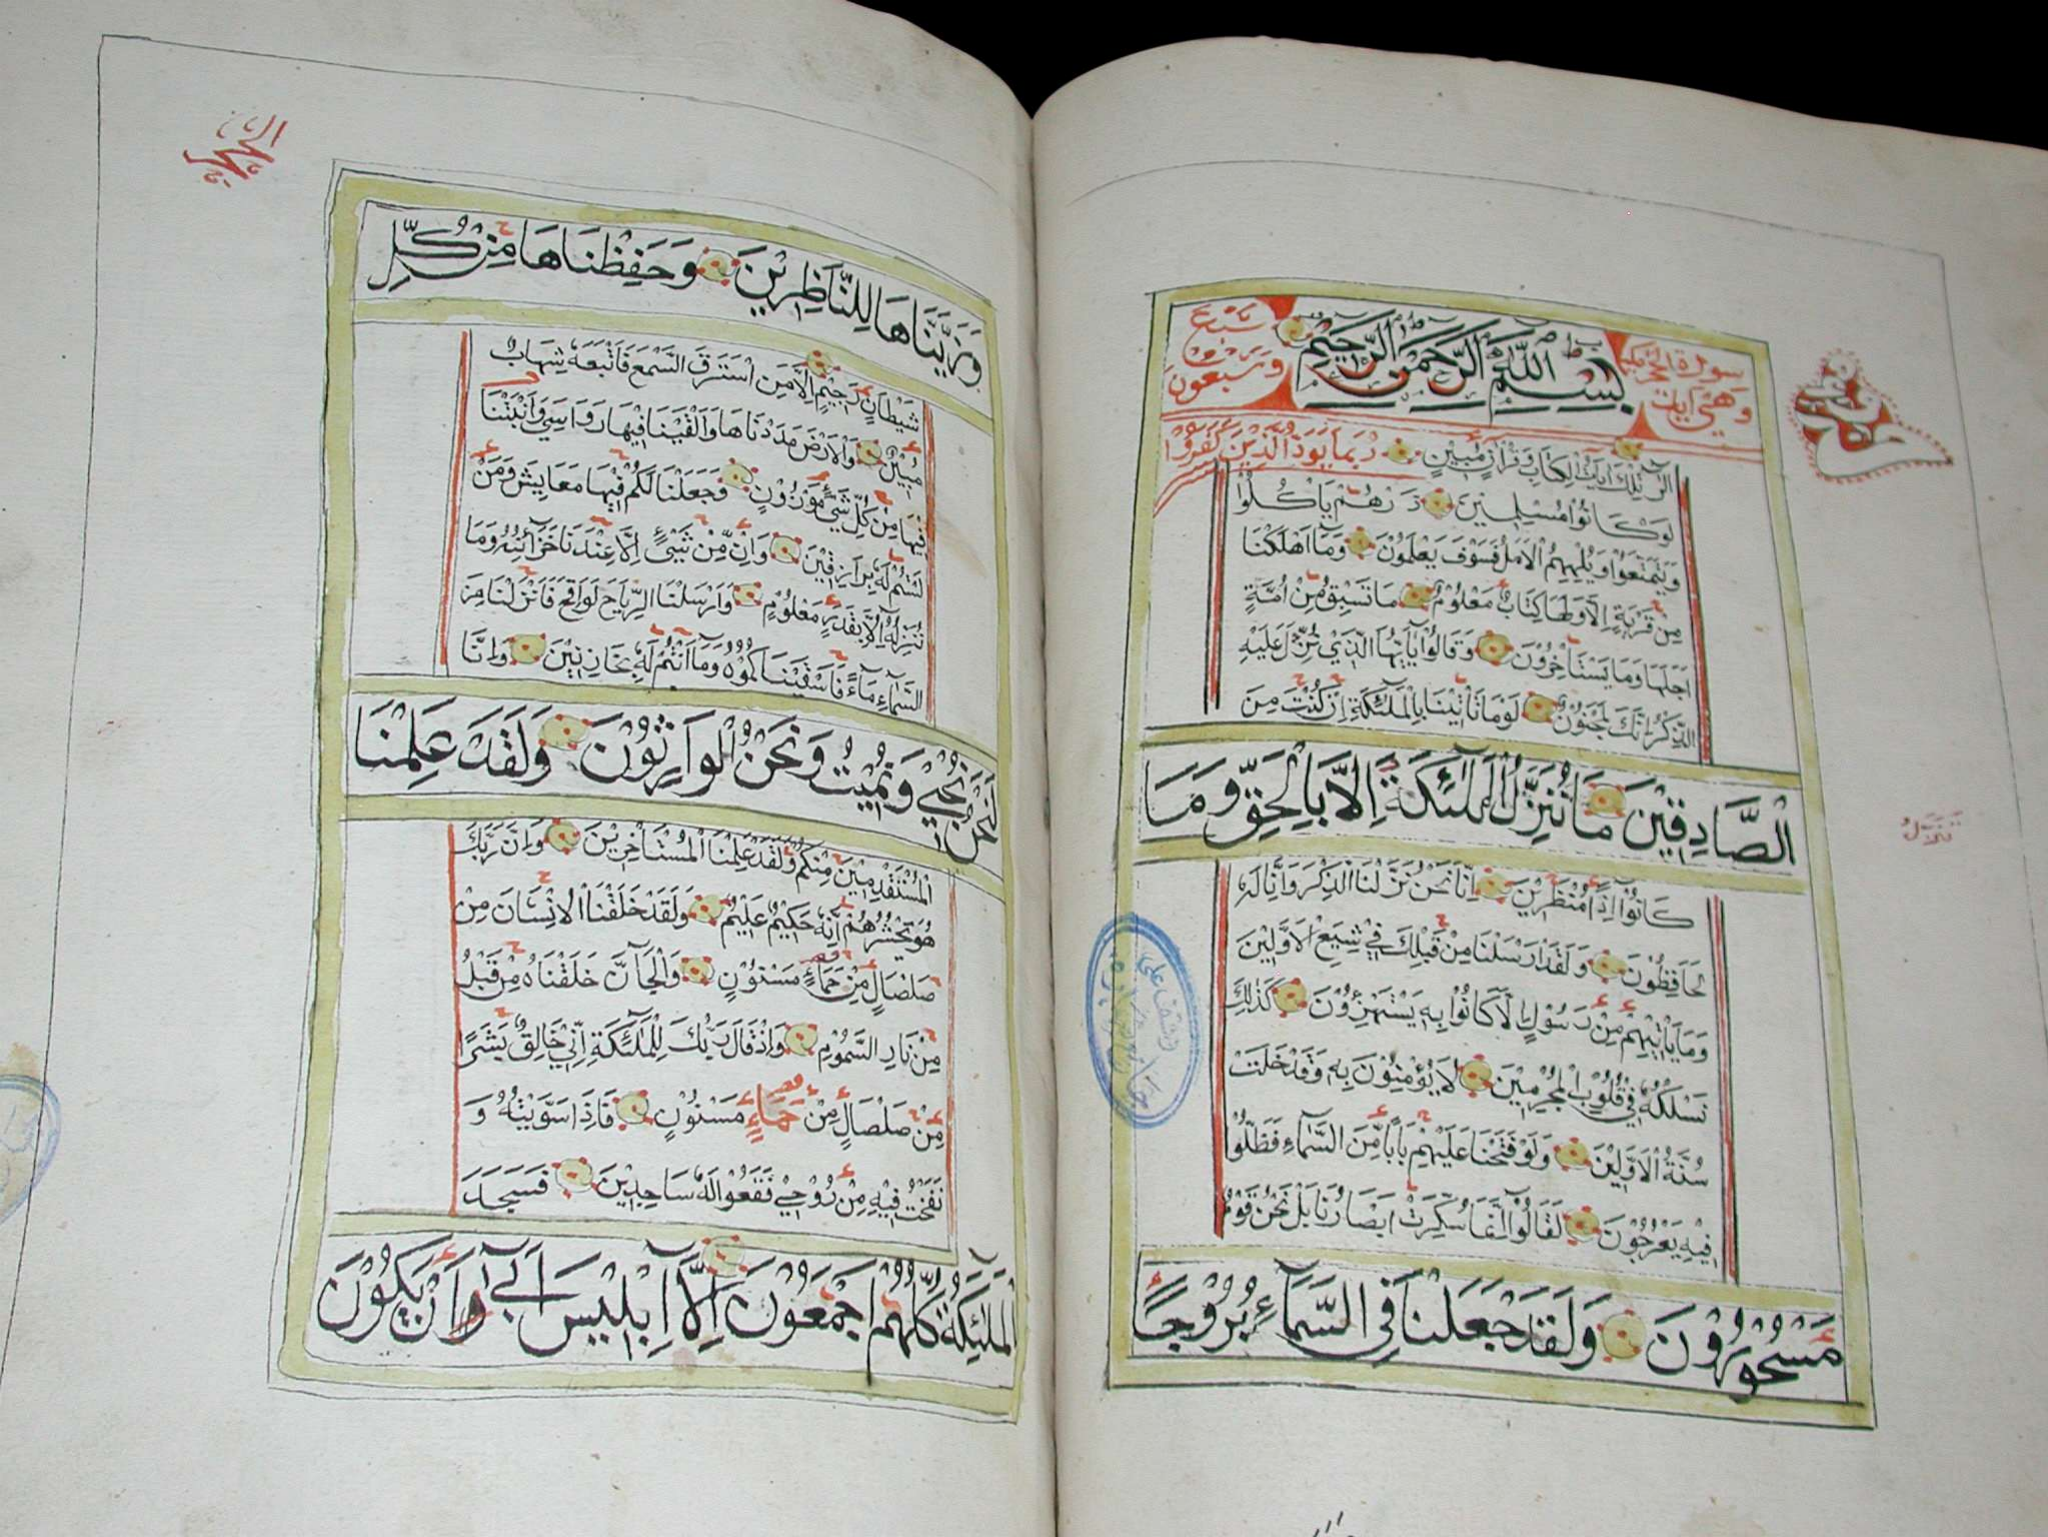 سورة الحجر مكية
وهي آيات
بِسْمِ اللّٰهِ الرَّحْمٰنِ الرَّحِيْمِ
تِسْع
وَتِسْعُونَ
الٓرٰ تِلْكَ اٰيَاتُ الْكِتَابِ وَقُرْاٰنٍ مُبِيْنٍ رُبَمَا يَوَدُّ الَّذِيْنَ كَفَرُوْا
لَوْ كَانُوْا مُسْلِمِيْنَ ذَرْهُمْ يَاْكُلُوْا
وَيَتَمَتَّعُوْا وَيُلْهِهِمُ الْاَمَلُ فَسَوْفَ يَعْلَمُوْنَ وَمَا اَهْلَكْنَا
مِنْ قَرْيَةٍ اِلَّا وَلَهَا كِتَابٌ مَعْلُوْمٌ مَا تَسْبِقُ مِنْ اُمَّةٍ
اَجَلَهَا وَمَا يَسْتَاْخِرُوْنَ وَقَالُوْا يَا اَيُّهَا الَّذِيْ نُزِّلَ عَلَيْهِ
الذِّكْرُ اِنَّكَ لَمَجْنُوْنٌ لَوْ مَا تَاْتِيْنَا بِالْمَلٰٓئِكَةِ اِنْ كُنْتَ مِنَ
الصَّادِقِيْنَ مَا نُنَزِّلُ الْمَلٰٓئِكَةَ اِلَّا بِالْحَقِّ وَمَا
كَانُوْٓا اِذًا مُنْظَرِيْنَ اِنَّا نَحْنُ نَزَّلْنَا الذِّكْرَ وَاِنَّا لَهُ
لَحَافِظُوْنَ وَلَقَدْ اَرْسَلْنَا مِنْ قَبْلِكَ فِيْ شِيَعِ الْاَوَّلِيْنَ
وَمَا يَاْتِيْهِمْ مِنْ رَسُوْلٍ اِلَّا كَانُوْا بِهٖ يَسْتَهْزِؤُوْنَ كَذٰلِكَ
نَسْلُكُهُ فِيْ قُلُوْبِ الْمُجْرِمِيْنَ لَا يُؤْمِنُوْنَ بِهٖ وَقَدْ خَلَتْ
سُنَّةُ الْاَوَّلِيْنَ وَلَوْ فَتَحْنَا عَلَيْهِمْ بَابًا مِنَ السَّمَآءِ فَظَلُّوْا
فِيْهِ يَعْرُجُوْنَ لَقَالُوْٓا اِنَّمَا سُكِّرَتْ اَبْصَارُنَا بَلْ نَحْنُ قَوْمٌ
مَسْحُوْرُوْنَ وَلَقَدْ جَعَلْنَا فِي السَّمَآءِ بُرُوْجًا
الحجر
وَزَيَّنَّاهَا لِلنَّاظِرِيْنَ وَحَفِظْنَاهَا مِنْ كُلِّ
شَيْطَانٍ رَجِيْمٍ اِلَّا مَنِ اسْتَرَقَ السَّمْعَ فَاَتْبَعَهُ شِهَابٌ
مُبِيْنٌ وَالْاَرْضَ مَدَدْنَاهَا وَاَلْقَيْنَا فِيْهَا رَوَاسِيَ وَاَنْبَتْنَا
فِيْهَا مِنْ كُلِّ شَيْءٍ مَوْزُوْنٍ وَجَعَلْنَا لَكُمْ فِيْهَا مَعَايِشَ وَمَنْ
لَسْتُمْ لَهُ بِرَازِقِيْنَ وَاِنْ مِّنْ شَيْءٍ اِلَّا عِنْدَنَا خَزَآئِنُهُ وَمَا
نُنَزِّلُهُ اِلَّا بِقَدَرٍ مَعْلُوْمٍ وَاَرْسَلْنَا الرِّيَاحَ لَوَاقِحَ فَاَنْزَلْنَا مِنَ
السَّمَآءِ مَآءً فَاَسْقَيْنَاكُمُوْهُ وَمَآ اَنْتُمْ لَهُ بِخَازِنِيْنَ وَاِنَّا
لَنَحْنُ نُحْيِيْ وَنُمِيْتُ وَنَحْنُ الْوَارِثُوْنَ وَلَقَدْ عَلِمْنَا
الْمُسْتَقْدِمِيْنَ مِنْكُمْ وَلَقَدْ عَلِمْنَا الْمُسْتَاْخِرِيْنَ وَاِنَّ رَبَّكَ
هُوَ يَحْشُرُهُمْ اِنَّهُ حَكِيْمٌ عَلِيْمٌ وَلَقَدْ خَلَقْنَا الْاِنْسَانَ مِنْ
صَلْصَالٍ مِنْ حَمَاءٍ مَسْنُوْنٍ وَالْجَآنَّ خَلَقْنَاهُ مِنْ قَبْلُ
مِنْ نَارِ السَّمُوْمِ وَاِذْ قَالَ رَبُّكَ لِلْمَلٰٓئِكَةِ اِنِّيْ خَالِقٌ بَشَرًا
مِنْ صَلْصَالٍ مِنْ حَمَاءٍ مَسْنُوْنٍ فَاِذَا سَوَّيْتُهُ وَ
نَفَخْتُ فِيْهِ مِنْ رُوْحِيْ فَقَعُوْا لَهُ سَاجِدِيْنَ فَسَجَدَ
الْمَلٰٓئِكَةُ كُلُّهُمْ اَجْمَعُوْنَ اِلَّا اِبْلِيْسَ اَبٰٓى اَنْ يَكُوْنَ